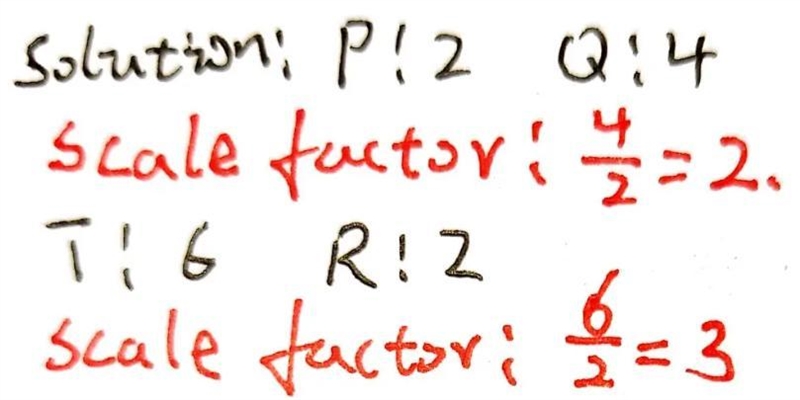 Solution: P:2 Q:4
Scale factor: 4/2 = 2.
T:6 R:2
Scale factor: 6/2 = 3